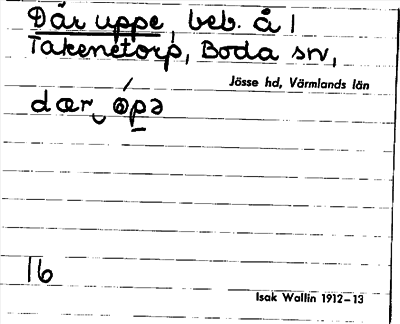 Där uppe, beb. å 1
Takenetorp, Boda sn,
Jösse hd, Värmlands län
dær‿ópə
16
Isak Wallin 1912–13